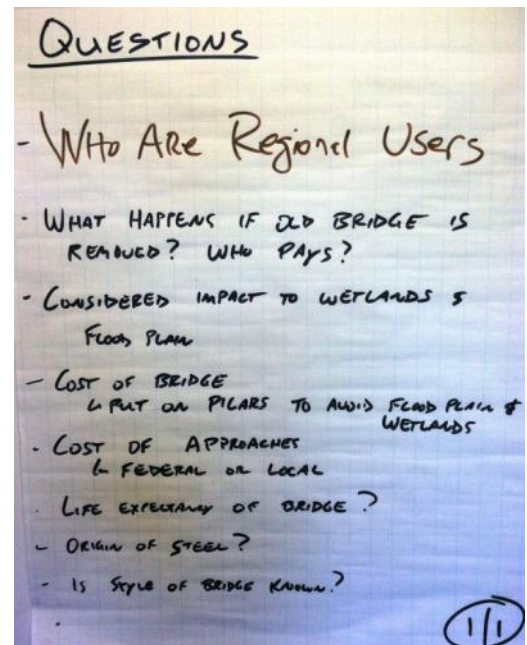 QUESTIONS
- WHO ARE Regional Users
- WHAT HAPPENS IF OLD BRIDGE IS
REMOVED? WHO PAYS?
- CONSIDERED IMPACT TO WETLANDS &
FLOOD PLAIN
- COST OF BRIDGE
↳ PUT ON PILARS TO AVOID FLOOD PLAIN &
WETLANDS
- COST OF APPROACHES
↳ FEDERAL OR LOCAL
- LIFE EXPECTANCY OF BRIDGE?
- ORIGIN OF STEEL?
- IS STYLE OF BRIDGE KNOWN?
1/1